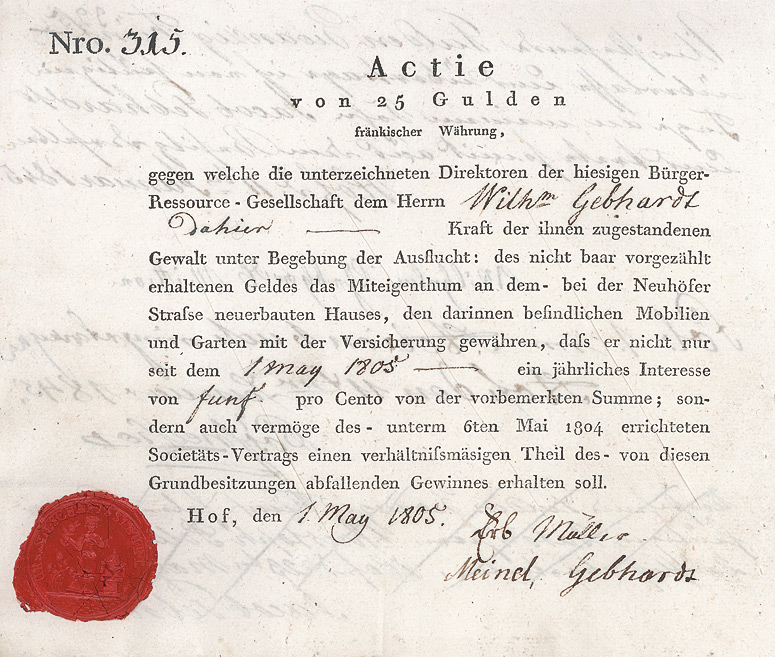 Nro. 315.
Actie
von 25 Gulden
fränkischer Währung,
gegen welche die unterzeichneten Direktoren der hiesigen Bürger-
Ressource-Gesellschaft dem Herrn Wilhm Gebhardt
Dahier — Kraft der ihnen zugestandenen
Gewalt unter Begebung der Ausflucht: des nicht baar vorgezählt
erhaltenen Geldes das Miteigenthum an dem- bei der Neuhöfer
Strafse neuerbauten Hauses, den darinnen befindlichen Mobilien
und Garten mit der Versicherung gewähren, dafs er nicht nur
seit dem 1 may 1805 — ein jährliches Interesse
von funf pro Cento von der vorbemerkten Summe; son-
dern auch vermöge des- unterm 6ten Mai 1804 errichteten
Societäts-Vertrags einen verhältnifsmäsigen Theil des- von diesen
Grundbesitzungen abfallenden Gewinnes erhalten soll.
Hof, den 1 May 1805.
Erb Müller
Meinel, Gebhardt